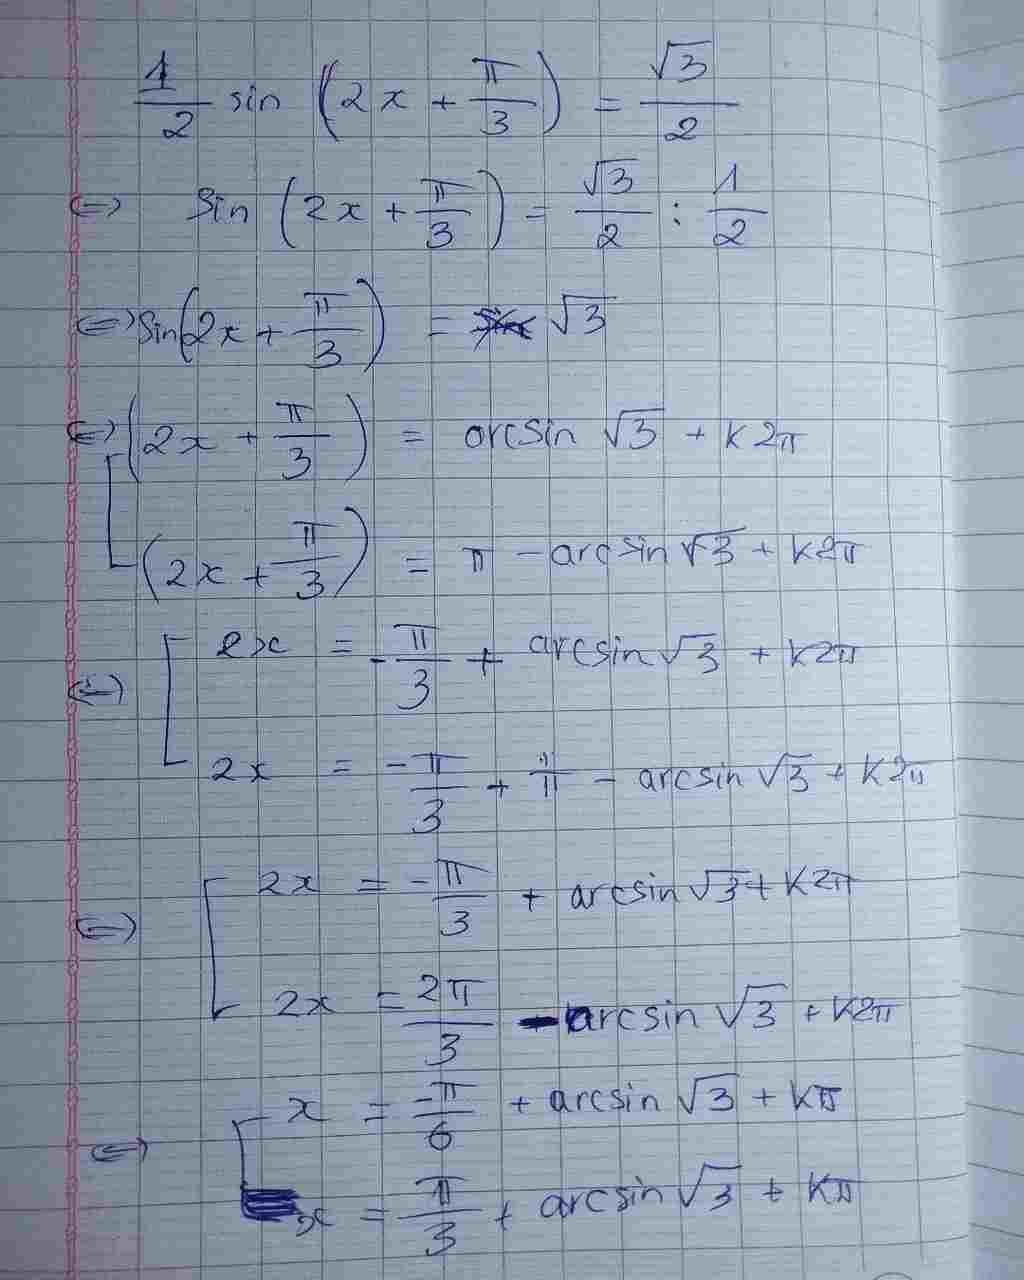 1/2 sin (2x + π/3) = √3/2
⇔ sin (2x + π/3) = √3/2 : 1/2
⇔ sin(2x + π/3) = √3
⇔ (2x + π/3) = arcsin √3 + k2π
(2x + π/3) = π - arcsin √3 + k2π
⇔ 2x = -π/3 + arcsin √3 + k2π
2x = -π/3 + π - arcsin √3 + k2π
⇔ 2x = -π/3 + arcsin √3 + k2π
2x = 2π/3 - arcsin √3 + k2π
⇔ x = -π/6 + arcsin √3 + kπ
x = π/3 + arcsin √3 + kπ